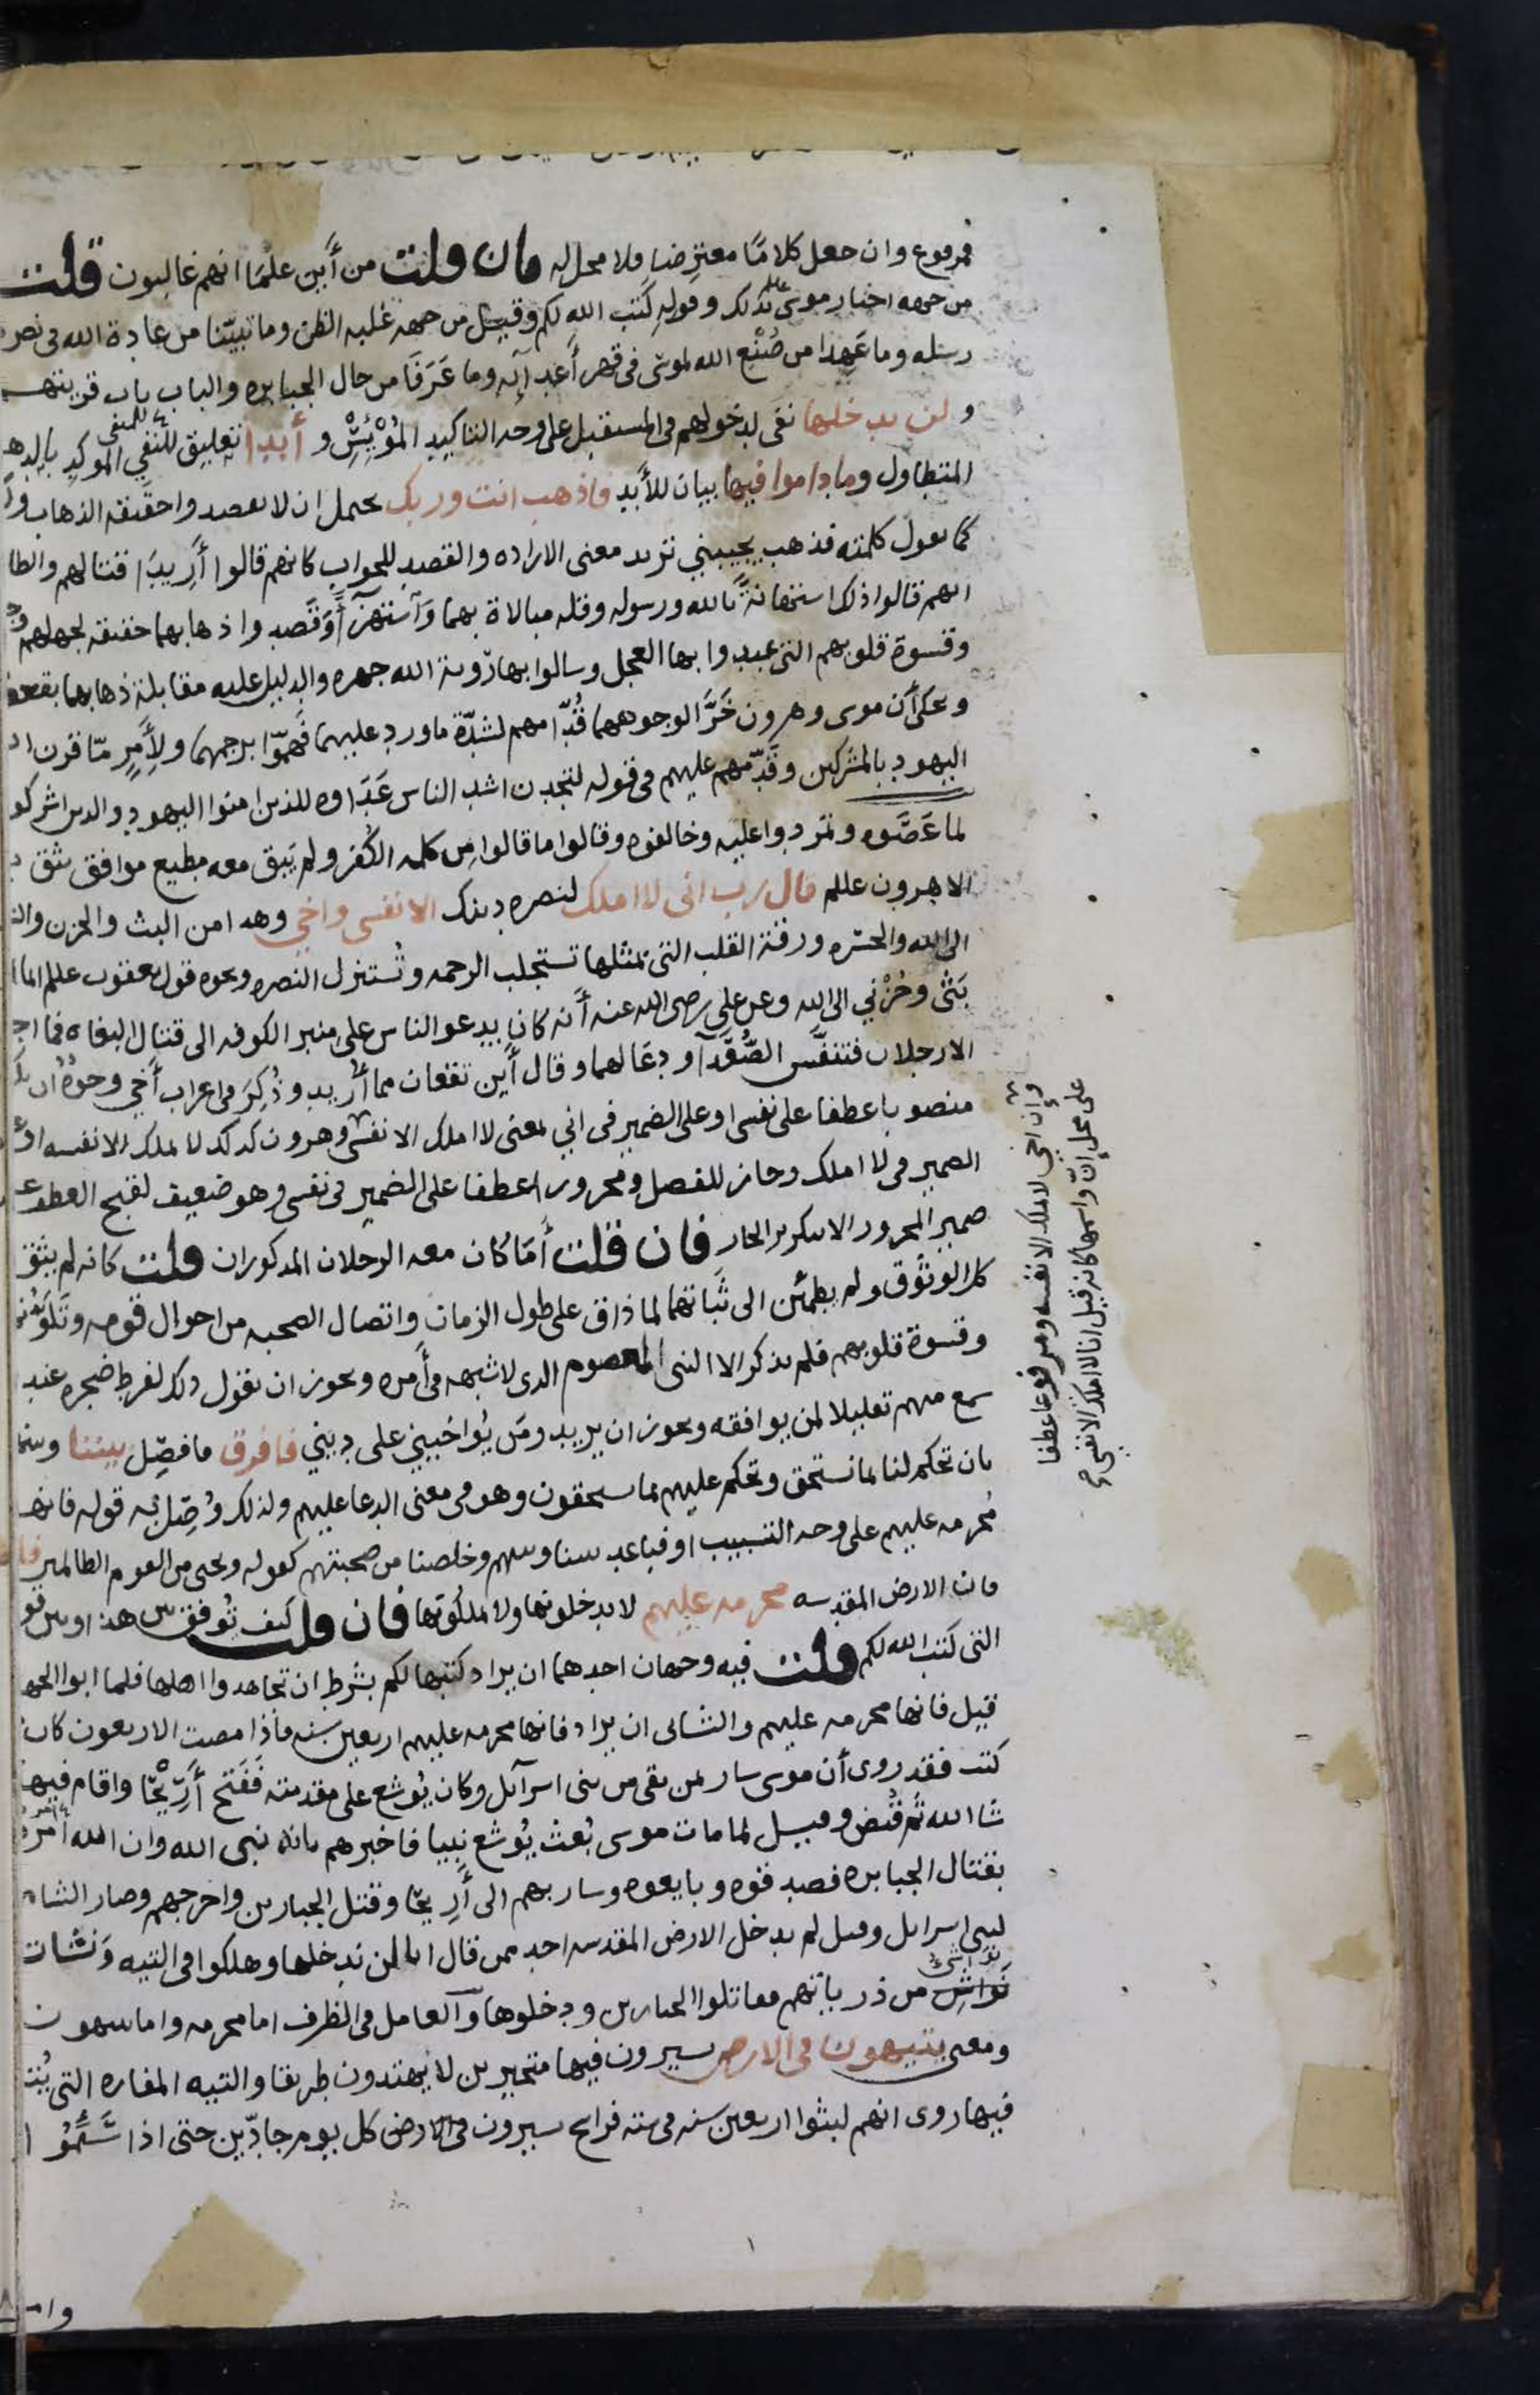 فمرفوع وان جعل كلامًا معترضا فلا محل له فان قلت من أين علمَا انهم غالبون قلت
من جهه اخبار موسى بذلك وقوله كتب الله لكم وقيل من جهه غلبه الظن وما تبيّنا من عادة الله فى نصره
رسله وما عَهِدا من صُنْع الله لموسى فى قهر أعدآئه وما عَرَفَا من حال الجبابره والباب باب قريتهم
و لن ندخلها نفى لدخولهم فى المستقبل على وجه التاكيد المُؤْيِسْ و أبدا تعليق للنفي الموكد بالدهر
المتطاول وما داموا فيها بيان للأبد فاذهب انت وربك يحتمل ان لا يقصدوا حقيقه الذهاب ولكن
كما تقول كلمته فذهب يجيبني تريد معنى الاراده والقصد للجواب كانهم قالوا أريدَا قتالهم والظا
انهم قالوا ذلك استهانةً بالله ورسوله وقله مبالاة بهما وآستهزآءً وقصدوا ذهابهما حقيقه بجهلهم
وقسوة قلوبهم التى عبدوا بها العجل وسالوا بها رؤية الله جهره والدليل عليه مقابلة ذهابهما بقعود
ويحكى أن موسى وهرون خَرَّا لوجوههما قُدّامهم لشدّة ما ورد عليهما فهمّوا برجمهما ولأمرٍ مّا قرن ا
اليهود بالمشركين وقدّمهم عليهم فى قوله لتجدن اشد الناس عَدَاوه للذين امنوا اليهود والذين اشركو
لما عَصَوه وتمردوا عليه وخالفوه وقالوا ما قالوا من كلمه الكفر ولم يَبق معه مطيع موافق يثق
الا هرون عللم قال رب انى لا املك لنصره دينك الا نفسى واخي وهدا من البث والحزن والـ
الى الله والحسره ورقة القلب التى بمثلها تستجلب الرحمه وتُستنزل النصره ونحوه قول يعقوب عللم انما ا
بَثى وحُزْني الى الله وعن على رضى الله عنه أنه كان يدعو الناس على منبر الكوفه الى قتال البغاه فما اجا
الا رجلان فتنفَّس الصُّعَدآ ودعَا لهما وقال أين تقعان مما أُريد وذُكِرَ فى اعراب أخي وجوهٌ ان
منصوبا عطفا على نفسى او على الضمير فى اني بمعنى لا املك الا نفسى وهرون كذلك لا يملك الا نفسه او
الضمير فى لا املك وجاز للفصل ومجرورا عطفا على الضمير فى نفسى وهو ضعيف لقبح العطف
ضمير المجرور الا بتكرير الجار فان قلت أمَا كان معه الرجلان المذكوران قلت كانه لم يثق
كل الوثوق ولم يطمئن الى ثَباتهما لما ذاق على طول الزمان واتصال الصحبه من احوال قومه وتلونهـ
وقسوة قلوبهم فلم يذكر الا النبى المعصوم الذى لا شبهه فى أمره ويجوز ان يقول ذلك لفرط ضجره عند
سمع منهم تقليلا لمن يوافقه ويجوز ان يريد ومَن يُواخيني على ديني فافرق فافصِل بيننا وبينهـ
بان تحكم لنا بما نستحق وتحكم عليهم بما يستحقون وهو فى معنى الدعا عليهم ولذلك وُصِل به قوله فانها
مُحرمه عليهم على وجه التسبيب او فباعد بيننا وبينهم وخلصنا من صحبتهم كقوله ونجنى من القوم الظالمين
فان الارض المقدسه محرمه عليهم لا يدخلونها ولا يملكونها فان قلت كيف تُوفق بين هذا وبين قو
التى كتب الله لكم قلت فيه وجهان احدهما ان يراد كتبها لكم بشرط ان تجاهدوا اهلها فلما ابوا الجها
قيل فانها محرمه عليهم والثانى ان يراد فانها محرمه عليهم اربعين سنه فاذا مضت الاربعون كان
كتب فقد روى أن موسى سار بمن بقى من بنى اسرآيل وكان يُوشع على مقدمته فَفَتح أَرِيْحَا واقام فيها
شا الله ثم قُبض وقيل لما مات موسى بُعث يُوشع نبيا فاخبرهم بانه نبى الله وان الله امره
بقتال الجبابره فصدقوه وبايعوه وسار بهم الى أَرِيحَا وقتل الجبارين واخرجهم وصار الشام
لبنى اسرايل وقيل لم يدخل الارض المقدسه احد ممن قال انا لن ندخلها وهلكوا فى التيه وَنشات
نَواشِ من ذرياتهم فقاتلوا الجبارين ودخلوها وَالعامل فى الظرف اما محرمه واما يتيهون
ومعنى يتيهون فى الارض يسيرون فيها متحيرين لا يهتدون طريقا والتيه المفازه التى يُتـ
فيها روى انهم لبثوا اربعين سنه فى سته فراسخ يسيرون فى الارض كل يوم جادّين حتى اذا سَئِمُوا
وان اخى لا يملك الا نفسه ومرفوعا عطفا
على محل انّ واسمها كانه قيل انا لا املك الا نفسى